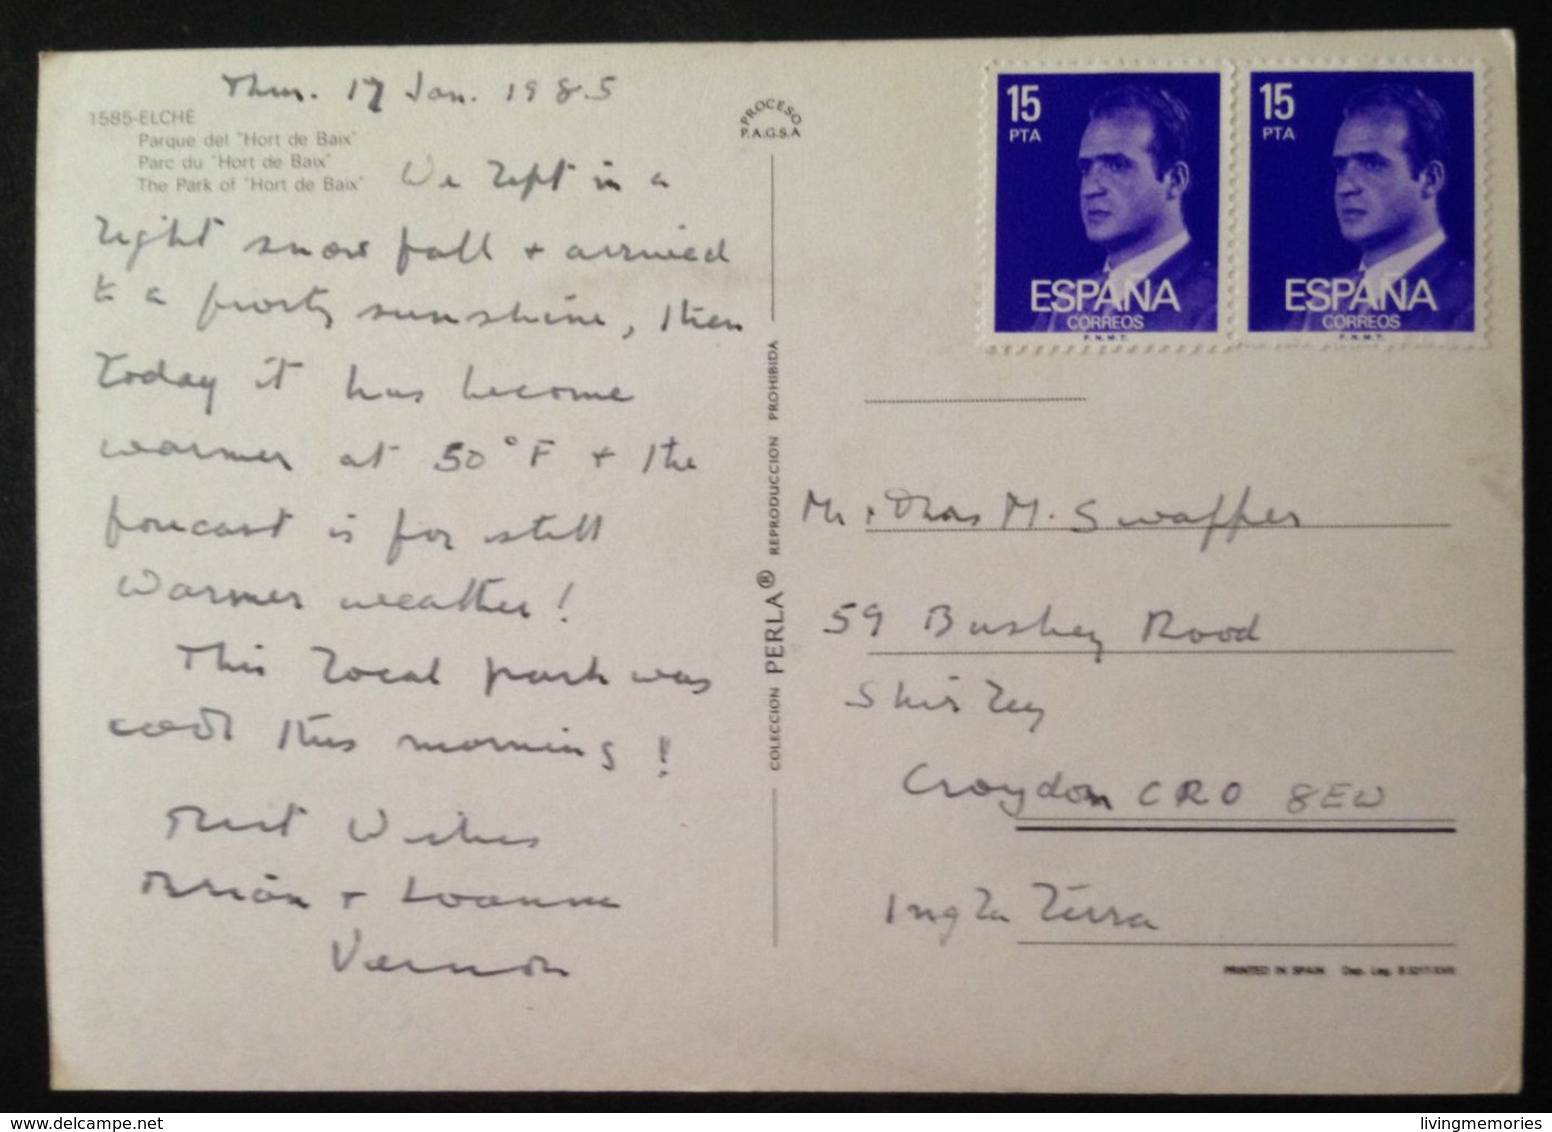 Thur. 17 Jan. 1985
1585-ELCHE
Parque del "Hort de Baix"
Parc du "Hort de Baix"
The Park of "Hort de Baix"
We left in a
light snow fall + arrived
to a frosty sunshine, then
today it has become
warmer at 50°F + the
forecast is for still
warmer weather!
This local park was
cool this morning!
Best Wishes
+ Joanne
Vernon
PROCESO
P.A.G.S.A
COLECCION PERLA® REPRODUCCION PROHIBIDA
15
PTA
ESPAÑA
CORREOS
F.N.M.T.
15
PTA
ESPAÑA
CORREOS
F.N.M.T.
Mr + M. Swaffer
59 Bushey Road
Shirley
Croydon CR0 8EW
Inglaterra
PRINTED IN SPAIN Dep. Leg.
livingmemories